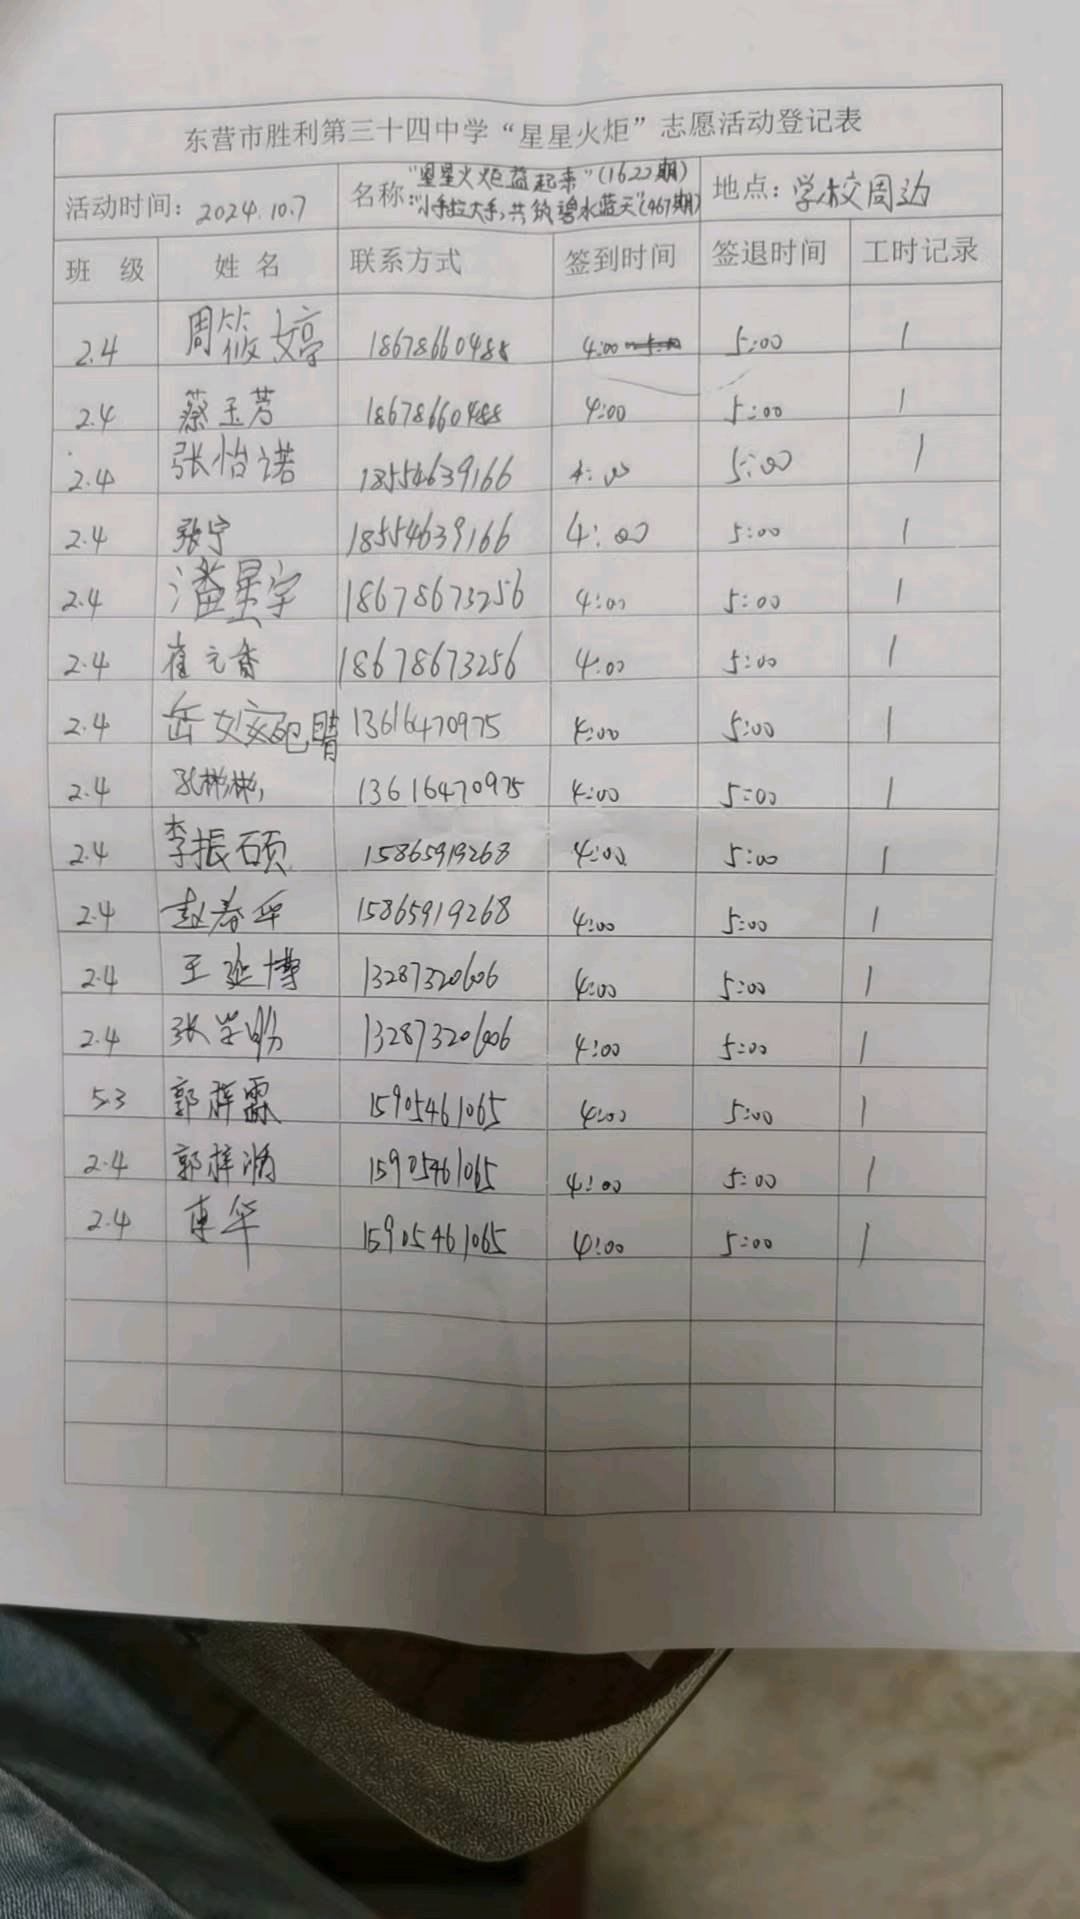 东营市胜利第三十四中学“星星火炬”志愿活动登记表
活动时间：2024.10.7 名称：“星星火炬益起来”(1622期) “小手拉大手，共筑碧水蓝天”(467期) 地点：学校周边
班 级 姓 名 联系方式 签到时间 签退时间 工时记录
2.4 周筱婷 18678660488 4:00 5:00 1
2.4 蔡玉芳 18678660488 4:00 5:00 1
2.4 张怡诺 18554639166 4:00 5:00 1
2.4 张宁 18554639166 4:00 5:00 1
2.4 潘星宇 18678673256 4:00 5:00 1
2.4 崔元香 18678673256 4:00 5:00 1
2.4 岳 13616470975 4:00 5:00 1
2.4 孔彬彬 13616470975 4:00 5:00 1
2.4 李振硕 15865919268 4:00 5:00 1
2.4 赵春华 15865919268 4:00 5:00 1
2.4 王延博 13287320606 4:00 5:00 1
2.4 张学 13287320606 4:00 5:00 1
5.3 郭梓霖 15905461065 4:00 5:00 1
2.4 郭梓 15905461065 4:00 5:00 1
2.4 华 15905461065 4:00 5:00 1